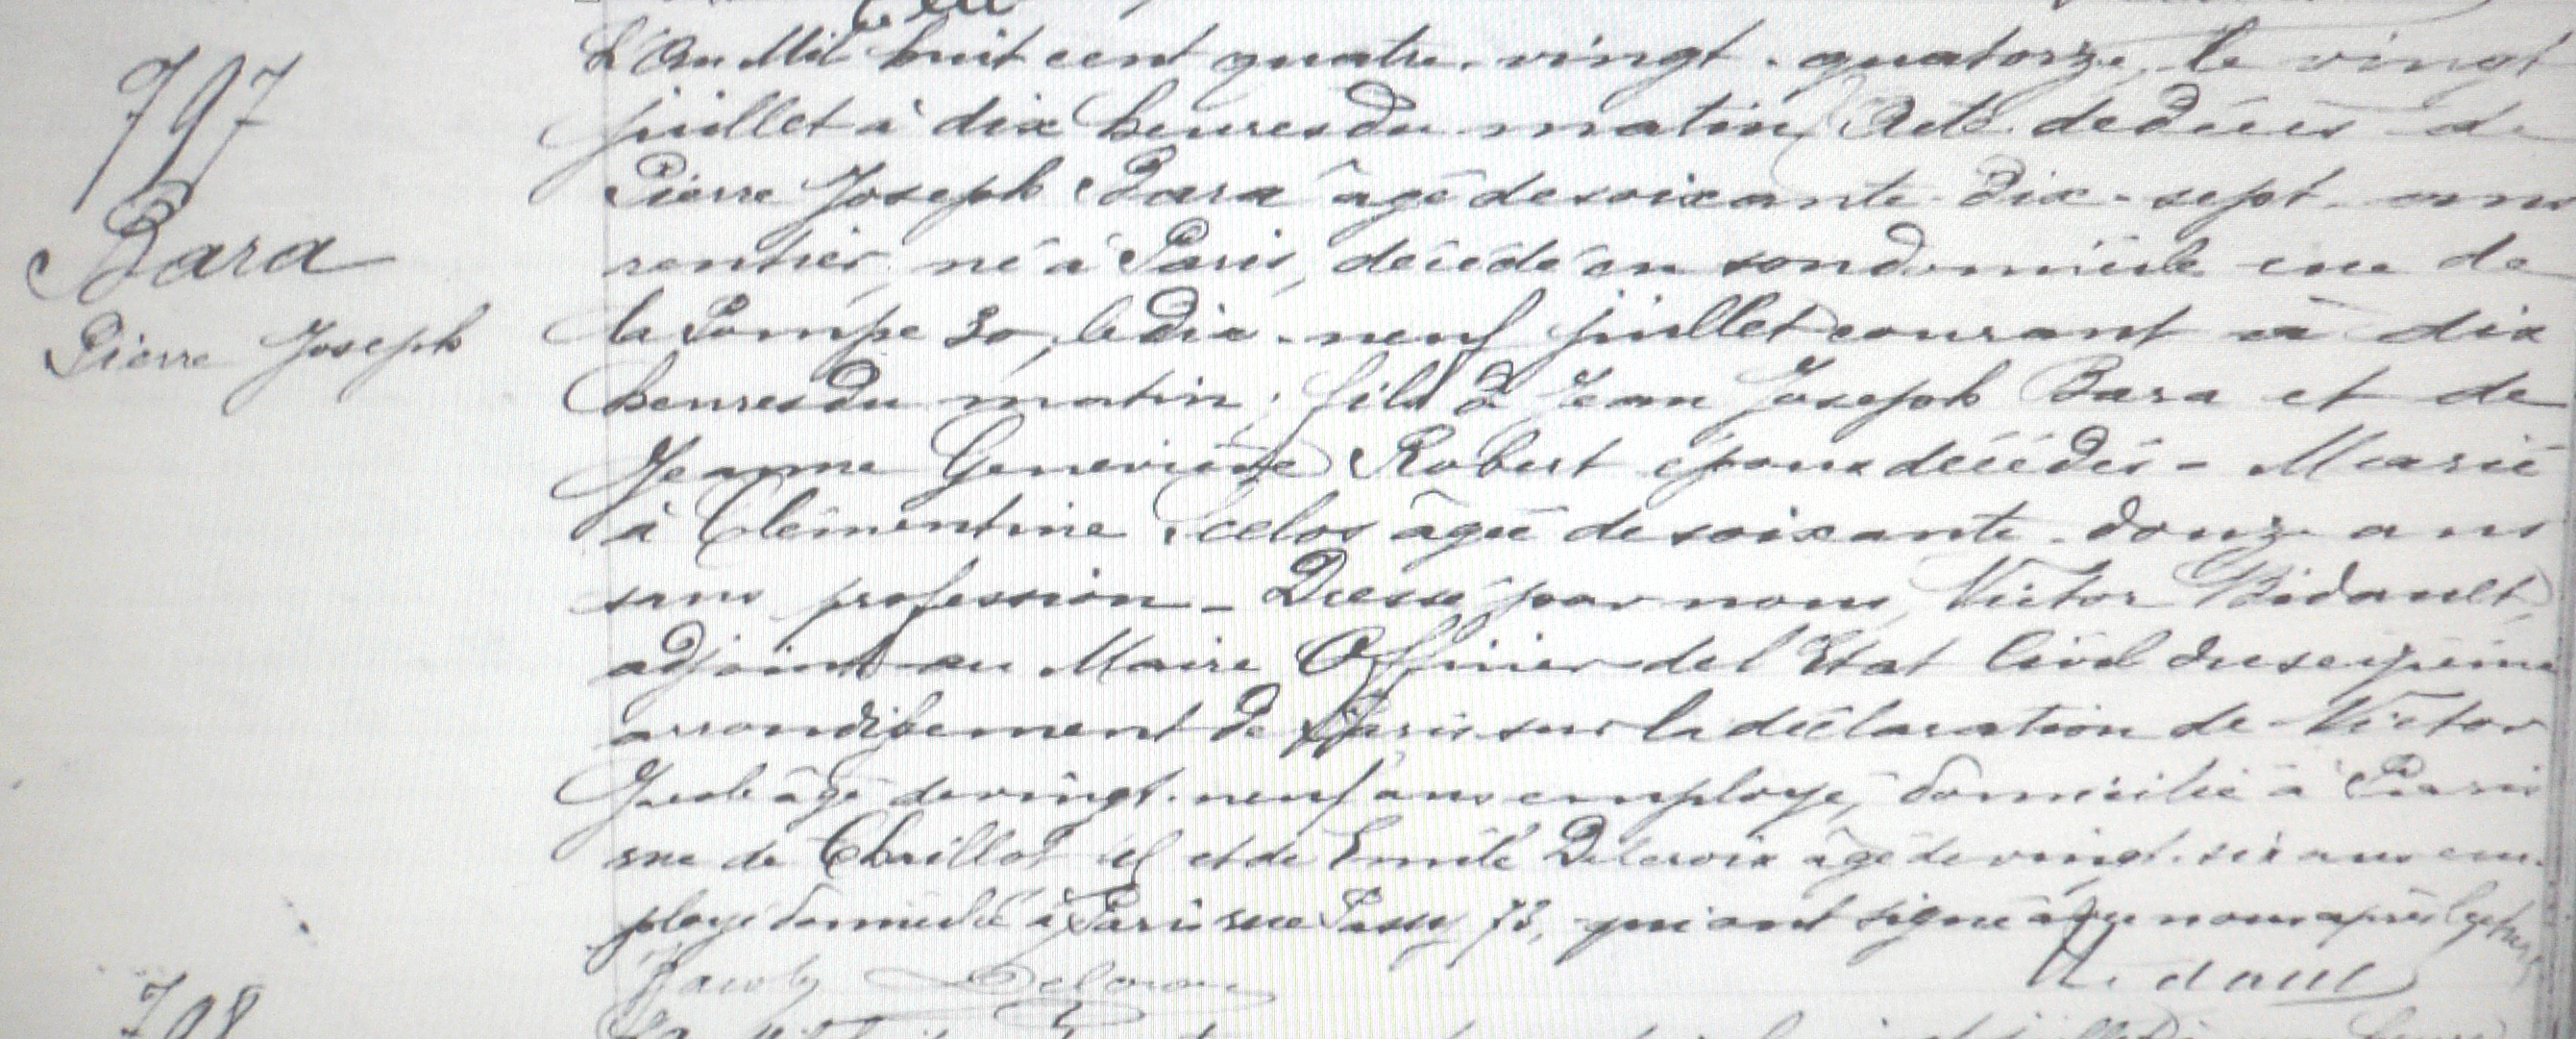 797
Bara
Pierre Joseph
L'an Mil huit cent quatre-vingt-quatorze, le vingt
juillet à dix heures du matin, Acte de décès de
Pierre Joseph Bara âgé de soixante-dix-sept ans
rentier, né à Paris, décédé en son domicile rue de
la Pompe 30, le dix-neuf juillet courant à dix
heures du matin, fils de Jean Joseph Bara et de
Jeanne Geneviève Robert époux décédés - Marié
à Clémentine âgée de soixante-douze ans
sans profession - Dressé par nous, Victor Bidault,
adjoint au Maire Officier de l'Etat Civil du seizième
arrondissement de Paris sur la déclaration de Victor
âgé de vingt-neuf ans employé, domicilié à Paris
rue de Chaillot et de Emile Delacroix âgé de vingt-six ans em-
ployé domicilié à Paris rue Passy, qui ont signé avec nous après lecture
Bidault
798